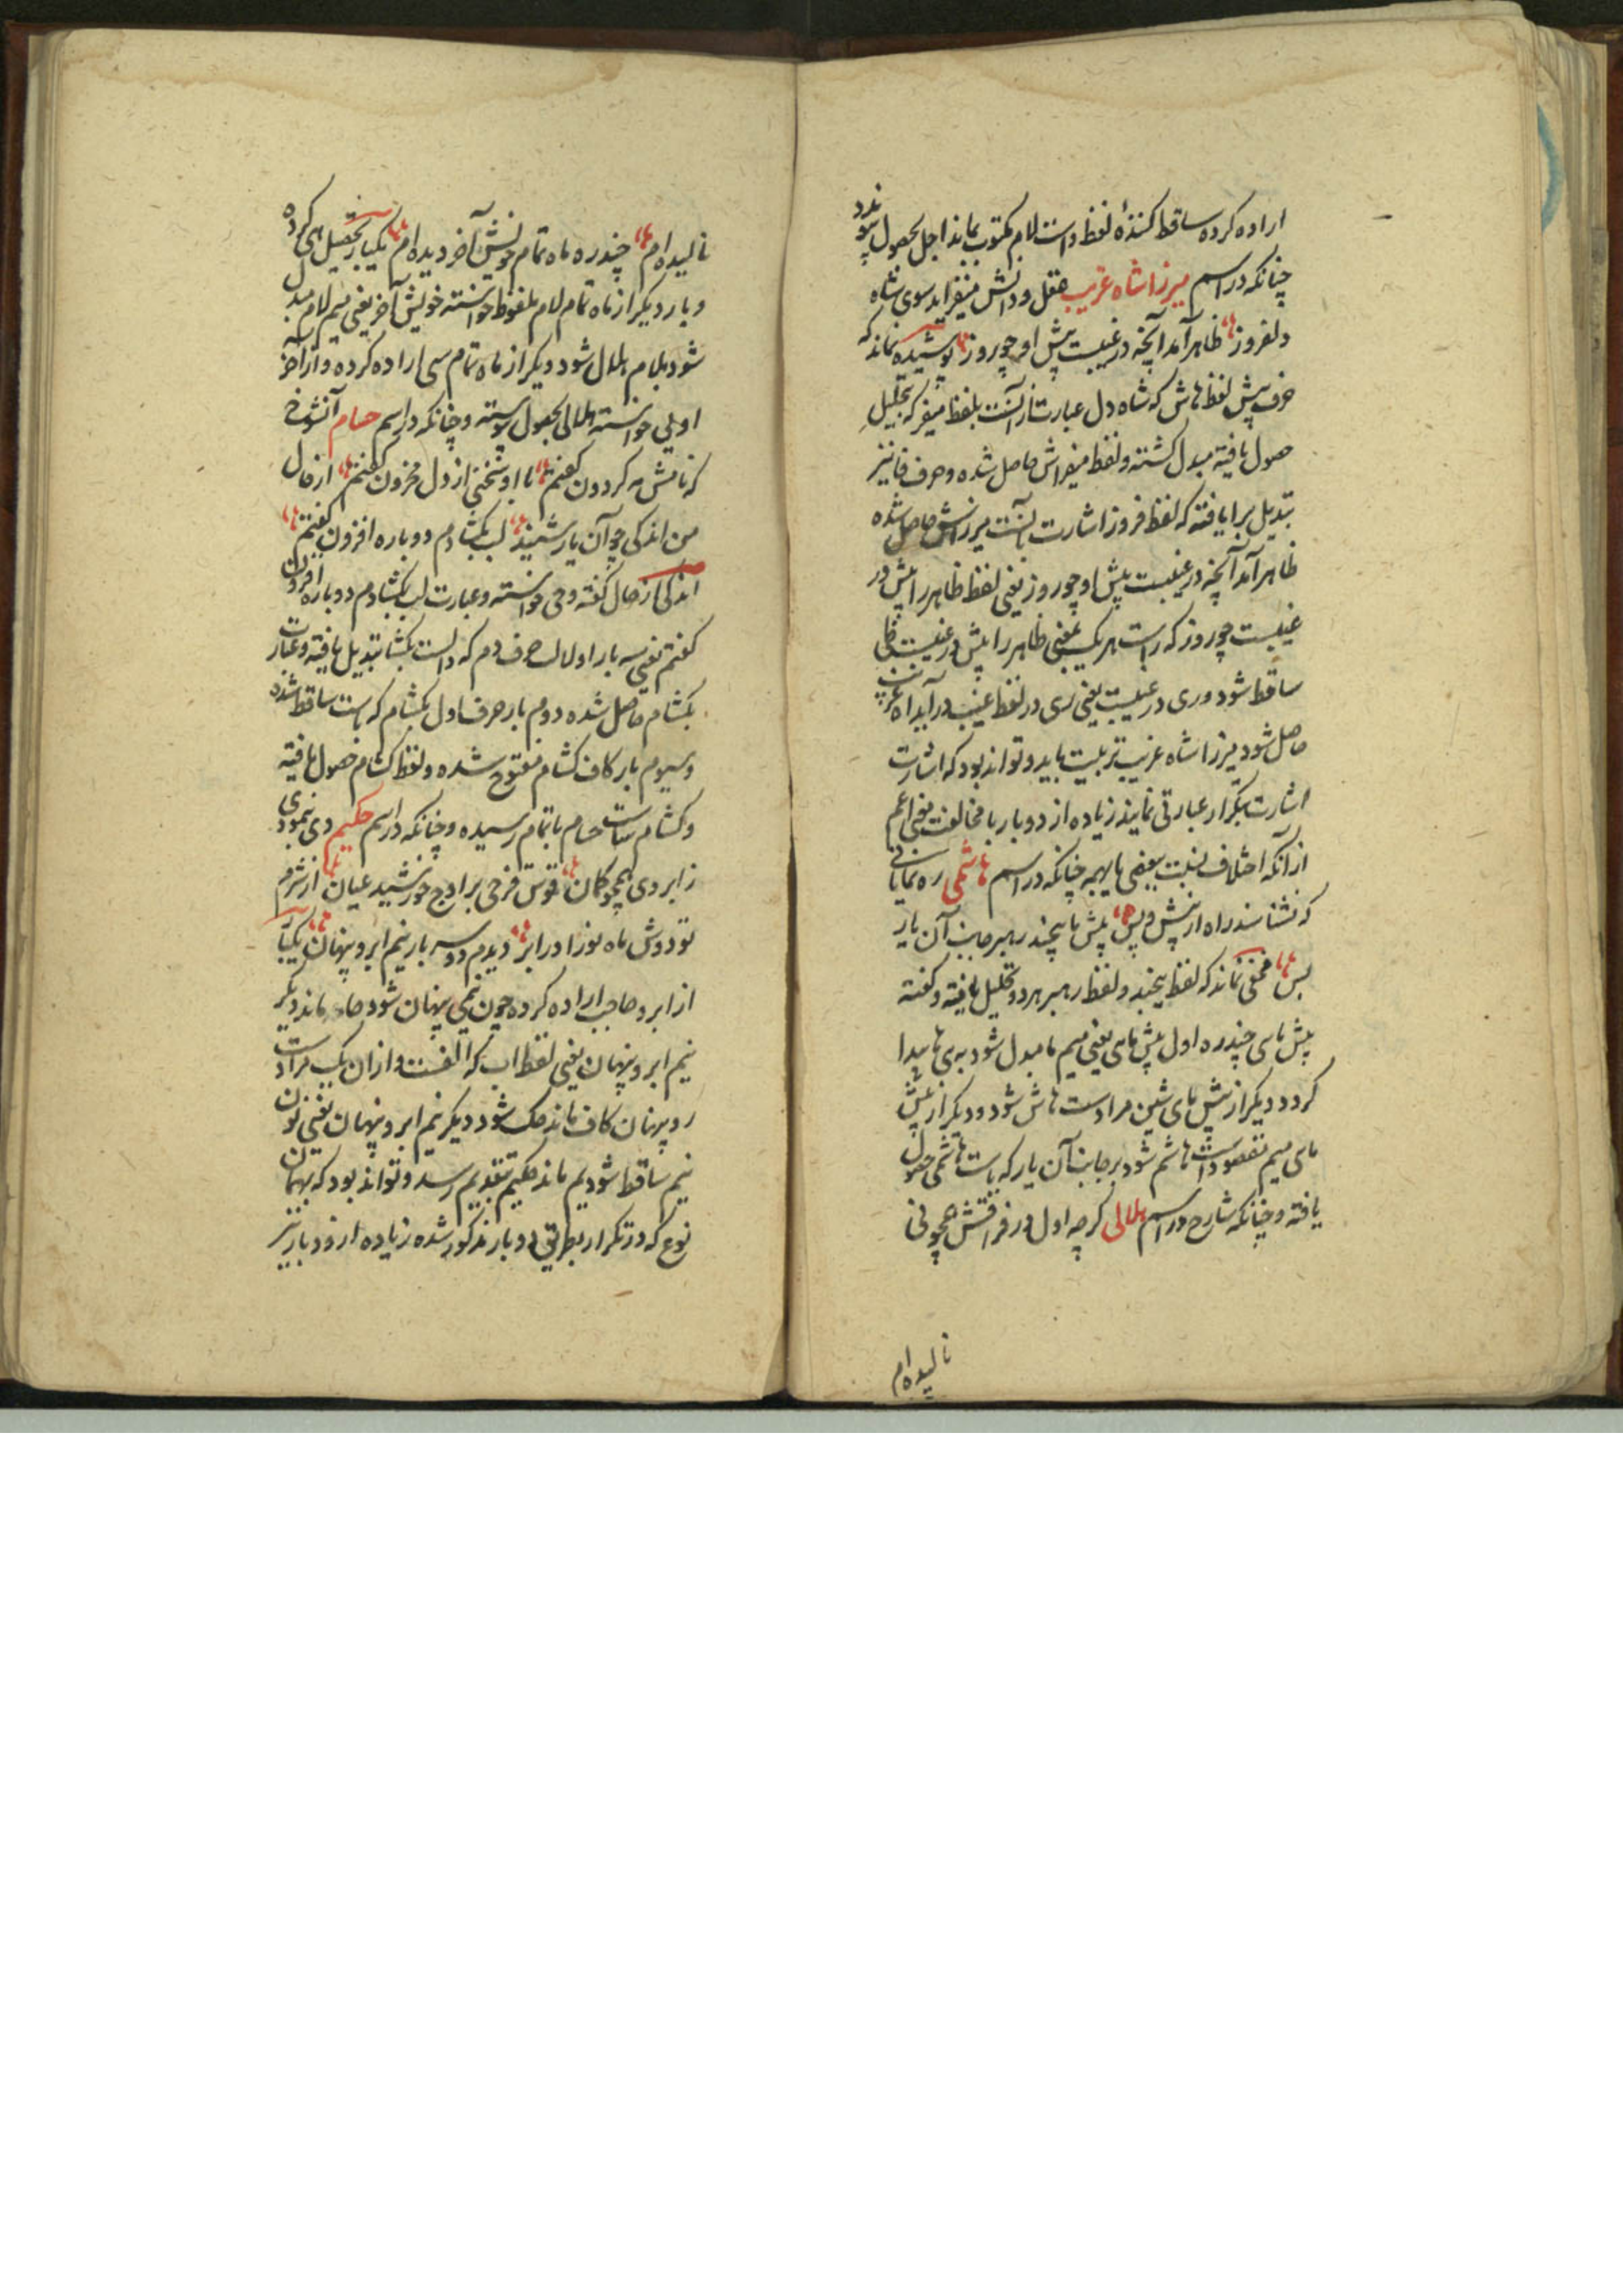 اراده کرده ساقط کنندهٔ لفظ داست لام مکتوب بماند اجل بحصول پیوندد
چنانکه در اسم میرزا شاه غریب عقل و دانش میفزاید سوی شاه
دلفروز ظاهر آمد آنچه در غیبت پیش او چو روز پوشیده نماند که
حرف پیش لفظ هاش که شاه دل عبارت از آنست بلفظ میفر که بتحلیل
حصول یافته مبدل کشته و لفظ میفراش حاصل شده و حرف فا نیز
تبدیل برا یافته که لفظ فروز اشارت بآنست میرزاش حاصل شده
ظاهر آمد آنچه در غیبت پیش او چو روز یعنی لفظ ظاهر را پیش در
غیبت چو روز که راست هر یک بمعنی ظاهر را پیش در غیبت ظا
ساقط شود و ری در غیبت یعنی ری در لفظ غیب در آید اه غریب
حاصل شود میرزا شاه غریب تربیت یابد و تواند بود که اشارت
اشارت بتکرار عبارتی نمایند زیاده از دو بار با مخالفت یعنی اعم
از آنکه اختلاف نسبت ببعضی یا بهمه چنانکه در اسم هاشمی ره نمایانی
که نشناسند راه از پیش و پس پیش ما پیچند رهبر جانب آن یار
بس مخفی نماند که لفظ پیچند و لفظ رهبر هر دو تحلیل یافته و کفته
پیش مای چند ره اول پیش مای یعنی میم ما مبدل شود به ی ها پیدا
کردد دیکر از پیش مای شین مرادست هاش شود و دیکر از پیش
مای میم مقصود است هاشم شود بر جانب آن یار که یاست هاشمی حصول
یافته و چنانکه شارح در اسم هلالی کرچه اول در فراقش همچو نی
نالیده‌ام
نالیده‌ام چند ره ماه تمام خویش آخر دیده‌ام یکبار بتحصیل هی کرده
و بار دیکر از ماه تمام لام ملفوظ خواسته خویش آخر یعنی میم لام مبدل
شود بلام هلال شود دیکر از ماه تمام سی اراده کرده و از آخر
او یی خواسته هلالی بحصول پیوسته و چنانکه در اسم حسام آنشوخ
که نامش مه کردون کفتم با او سخنی از دل محزون کفتم از حال
من اندکی چو آن یار شنید لب بکشادم دو باره افزون کفتم
اندکی از حال کفته و حی خواسته و عبارت لب بکشادم دو باره افزون
کفتم یعنی سه بار اول الف حرف دم که دالست بکشا تبدیل یافته و عبارت
بکشام حاصل شده دوم بار حرف اول بکشام که باست ساقط شده
و سیوم بار کاف کشام مفتوح شده و لفظ کشام حصول یافته
و کشام ساست حسام باتمام رسیده و چنانکه در اسم حکیم دی نمودی
ز ابروی همچو کمان قوس قزحی بر اوج خورشید عیان از شرم
تو دوش ماه نو را در ابر دیدم دو سه بار نیم ابرو پنهان یکبار
از ابرو حاجب اراده کرده چون نیمی پنهان شود حا ماند دیکر
نیم ابرو پنهان یعنی لفظ اب که الفست و از ان یک مرادست
رو پنهان کاف ماند حک شود دیکر نیم ابرو پنهان یعنی نون
نیم ساقط شود یم ماند حکیم بتقدیم رسد و تواند بود که بهمان
نوع که در تکرار بطریق دو بار مذکور شده زیاده از دو بار نیز